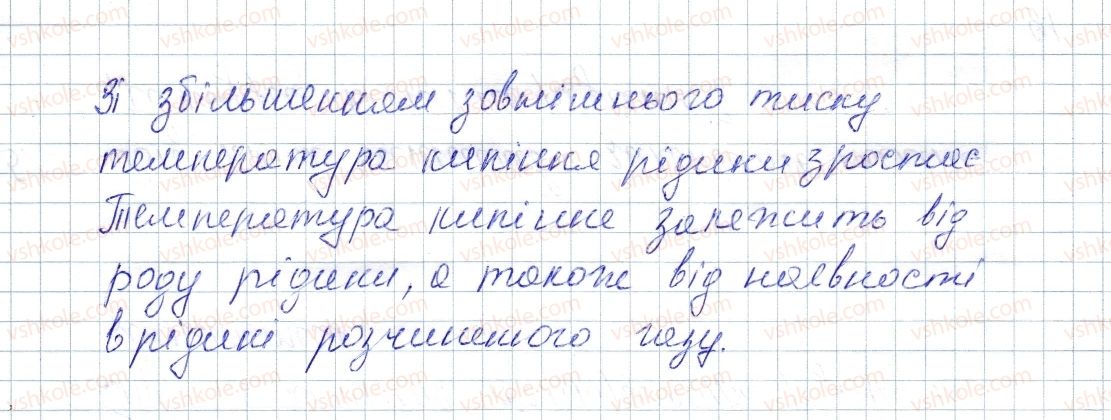 Зі збільшенням зовнішнього тиску
температура кипіння рідини зростає
Температура кипіння залежить від
роду рідини, а також від наявності
в рідині розчиненого газу.